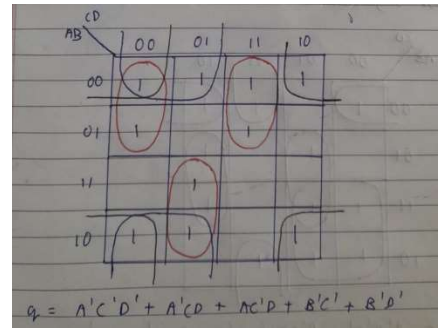 CD
AB 00 01 11 10
00 1 1 1 1
01 1 1
11 1
10 1 1 1
q = A'C'D' + A'CD + AC'D + B'C' + B'D'